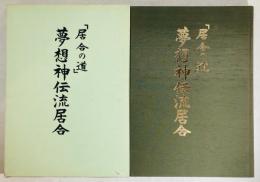 「居合の道」
夢想神伝流居合
「居合の道」
夢想神伝流居合